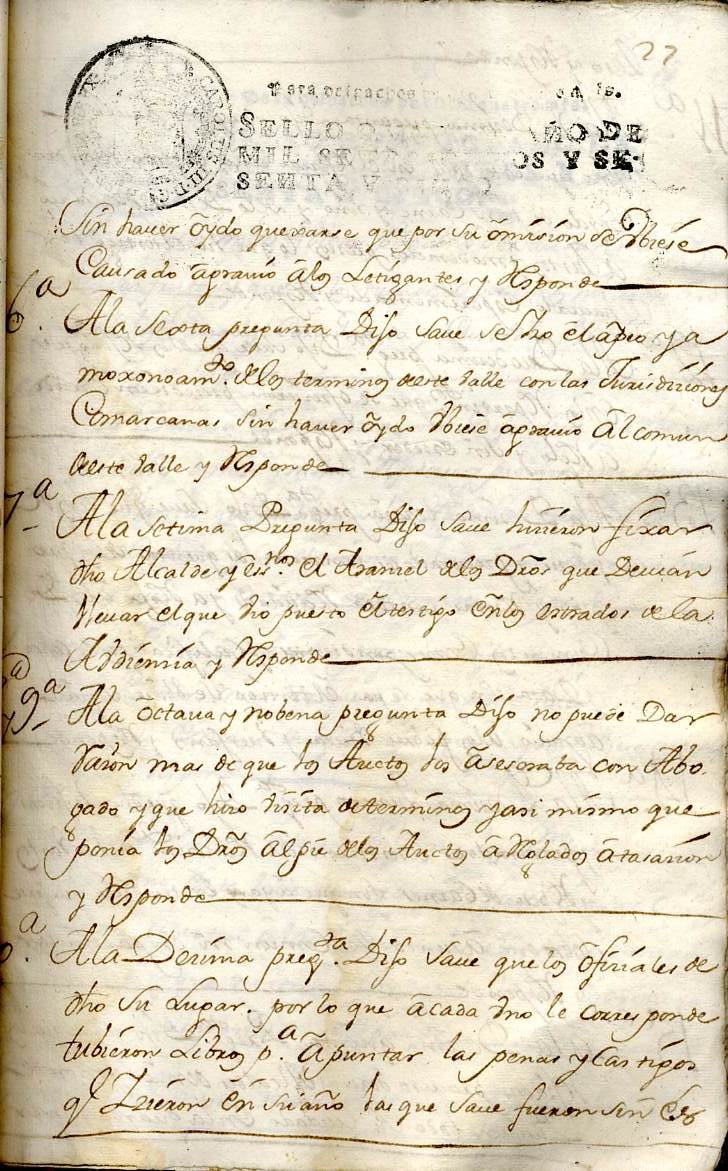 27
CAROLUS III D G
Para despachos
SELLO AÑO DE
MIL SE OS Y SE-
SENTA Y
Sin haver oydo quexarse que por su omision se Ubiese
Causado agravio a los Letigantes y Responde
6ª. A la sexta pregunta Dijo save se hizo el apeo y a
moxonoam.to de los terminos de este Valle con las Jurisdiziones
Comarcanas sin haver oydo Ubiese agravio al comun
de este Valle y Responde
7ª A la setima Pregunta Dijo save hizieron fixar
dho Alcalde y ess.nos el Aranzel de los Dros que Devian
llevar el que vio puesto el testigo en los estrados de la
Audienzia y Responde
8ª y 9ª A la Octava y nobena pregunta Dijo no puede Dar
Razon mas de que los Auctos los asesoraba con Abo-
gado y que hizo visita de terminos y asi mismo que
ponia los Dros al pie de los Auctos arreglados a tasazion
y Responde
A la Dezima preg.ta Dijo save que los ofiziales de
dho su Lugar. por lo que a cada uno le corresponde
tubieron Libros p.a apuntar las penas y Castigos
q.e Izieron en su año las que save fueron sin